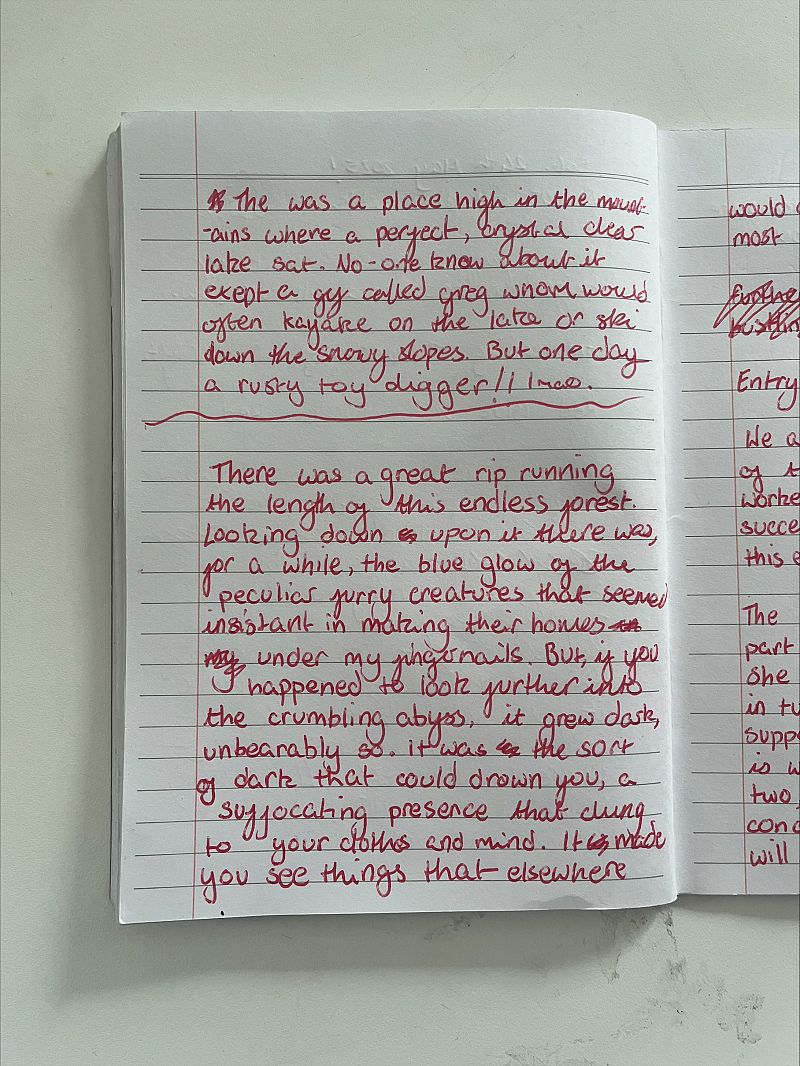 The was a place high in the mount-
-ains where a perfect, crystal clear
lake sat. No-one know about it
exept a gy called greg whom would
often kayake on the lake or ski
down the snowy slopes. But one day
a rusty toy digger!! lmao.
There was a great rip running
the length of this endless forest.
Looking down upon it there was,
for a while, the blue glow of the
peculiar furry creatures that seemed
insistant in making their homes
my under my fingernails. But, if you
happened to look further into
the crumbling abyss, it grew dark,
unbearably so. it was the sort
of dark that could drown you, a
suffocating presence that clung
to your clothes and mind. It made
you see things that elsewhere
would
most
Entry
We a
of t
worke
succe
this e
The
part
she
in tu
suppo
is w
two,
conc
will